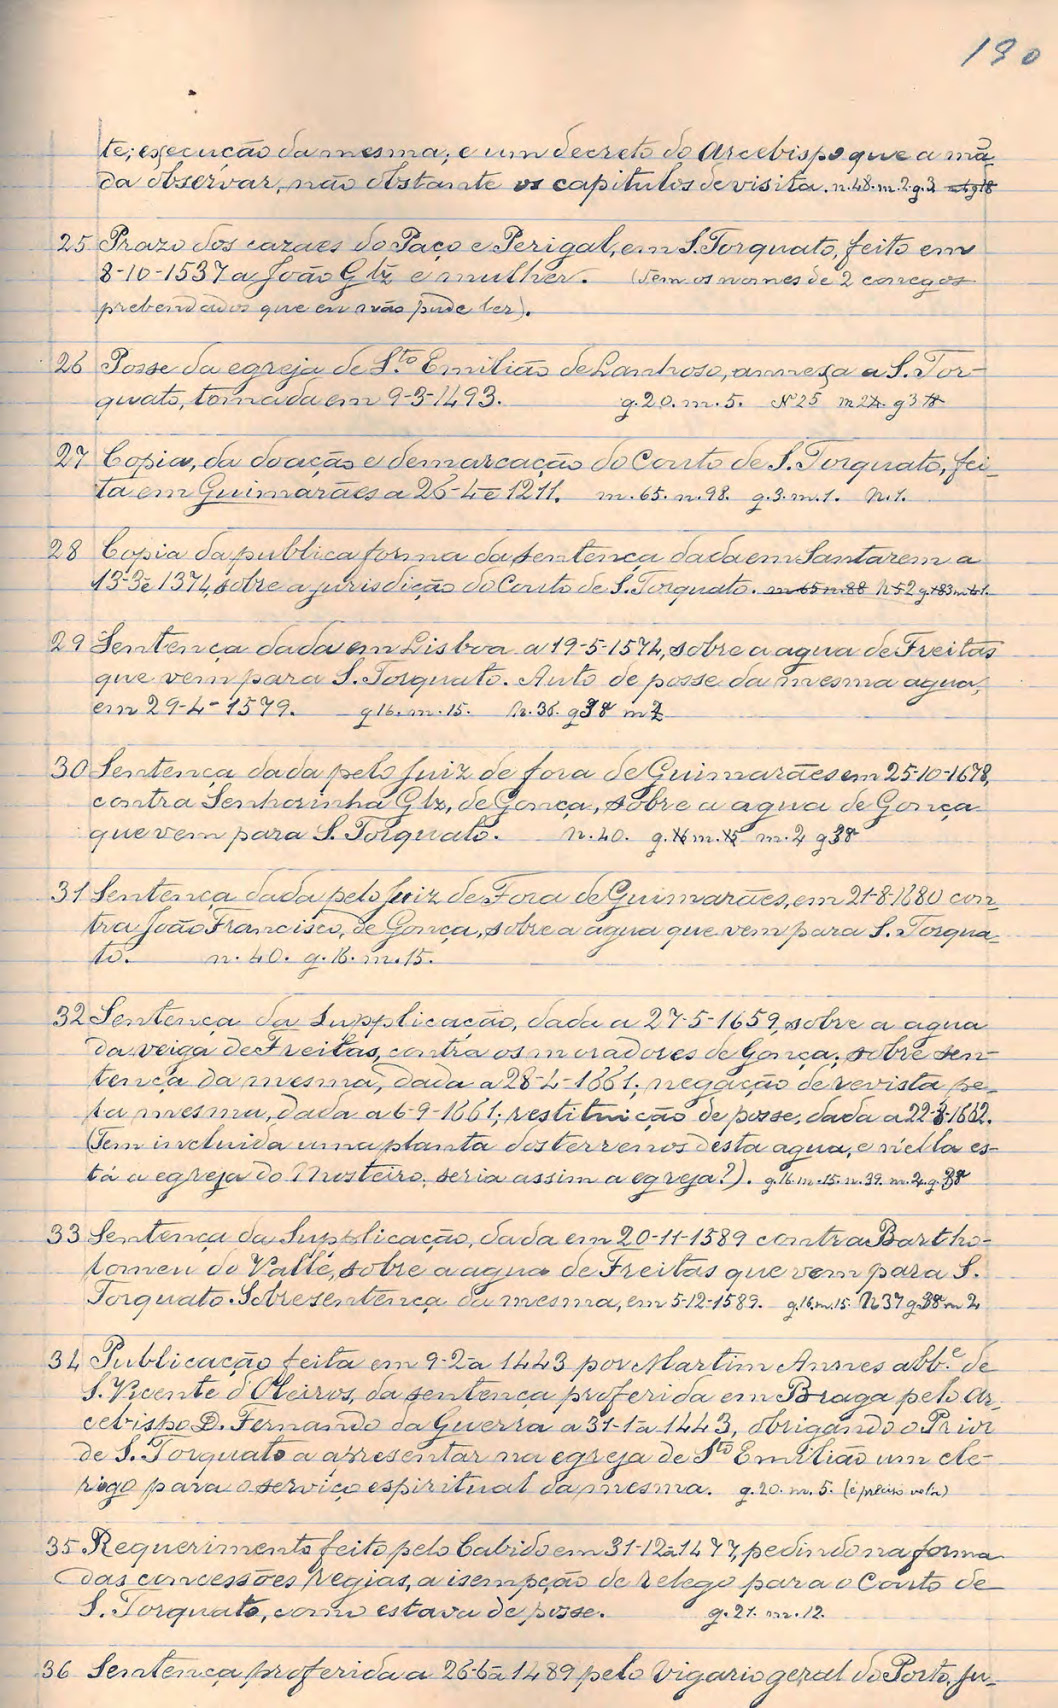 190
te; execução da mesma, e um decreto do Arcebispo que a mã
da observar, não obstante os capitulos de visita. n.48. m.2. g.3
25 Prazo dos cazaes do Paço e Perigal, em S. Torquato, feito em
8-10-1537 a João Glz e mulher. (Tem os nomes de 2 conegos
prebendados que eu não pude ler).
26 Posse da egreja de S.to Emilião de Lanhoso, annexa a S. Tor-
quato, tomada em 9-3-1493. g.20. m.5. Nº25
27 Copia, da doação e demarcação do Couto de S. Torquato, fei-
ta em Guimarães a 26-4-e 1211. m.65. n.98. g.3. m.1. N.1.
28 Copia da publica forma da sentença dada em Santarem a
13-3-e 1374, sobre a jurisdição do Couto de S. Torquato. m 65 n.88 N 52
29 Sentença dada em Lisboa a 19-5-1574, sobre a agua de Freitas
que vem para S. Torquato. Auto de posse da mesma agua,
em 29-4-1579. g 16. m.15. N.38.
30 Sentença dada pelo Juiz de fora de Guimarães em 25-10-1678,
contra Senhorinha Glz, de Gonça, sobre a agua de Gonça
que vem para S. Torquato. N.40. g.16 m.15 m.2 g38
31 Sentença dada pelo Juiz de Fora de Guimarães, em 21-8-1680 con-
tra João Francisco, de Gonça, sobre a agua que vem para S. Torqua-
to. n.40. g.16. m.15.
32 Sentença da Supplicação, dada a 27-5-1659, sobre a agua
da veiga de Freitas, contra os moradores de Gonça; sobre sen-
tença da mesma, dada a 28-4-1661; negação de revista pe-
la mesma, dada a 6-9-1661; restituição de posse, dada a 22-8-1662.
(Tem incluida uma planta dos terrenos desta agua, e n'ella es-
tá a egreja do Mosteiro; seria assim a egreja?). g.16. m.15. n.39. m.2. g.38
33 Sentença da Supplicação, dada em 20-11-1589 contra Bartho-
lomeu do Valle, sobre a agua de Freitas que vem para S.
Torquato. Sobresentença da mesma, em 5-12-1589. g.16. m.15. N37 g.38 m 2
34 Publicação feita em 9-2-a 1443 por Martim Annes abb.e de
S. Vicente d'Oleiros, da sentença proferida em Braga pelo Ar-
cebispo D. Fernando da Guerra a 31-1-a 1443, obrigando o Prior
de S. Torquato a apresentar na egreja de S.to Emilião um cle-
rigo para o serviço espiritual da mesma. g.20. m.5. (é preciso vela)
35 Requerimento feito pelo Cabido em 31-12-a 1477, pedindo na forma
das concessões regias, a isempção de relego para o Couto de
S. Torquato, como estava de posse. g.21. m.12.
36 Sentença proferida a 26-6-a 1489 pelo Vigario geral do Porto, Ju-